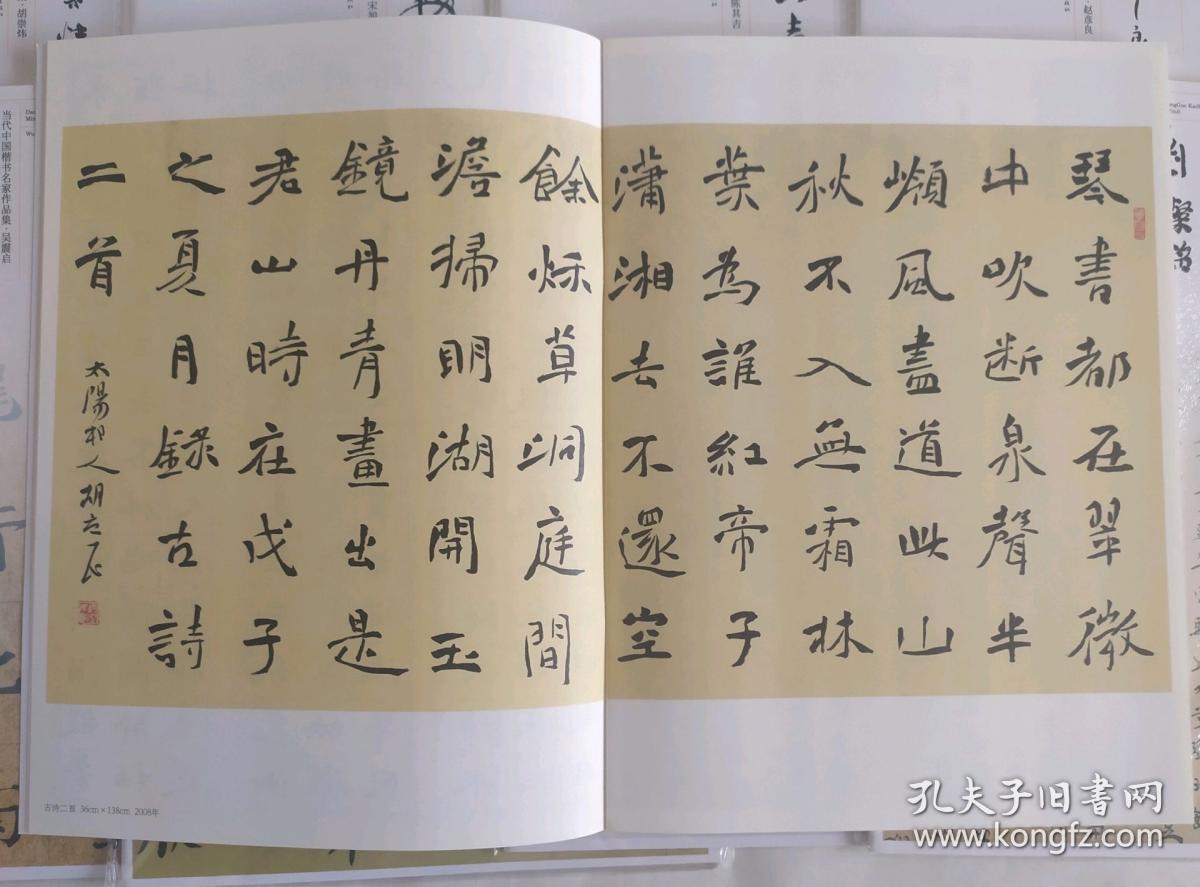 琴書都在翠微
中吹断泉聲半
嶺風盡道此山
秋不入無霜林
葉為誰紅帝子
瀟湘去不還空
餘秌草洞庭間
澹掃明湖開玉
鏡丹青畫出是
君山時在戊子
之夏月錄古詩
二首
太陽村人胡立民
古诗二首 36cm×138cm 2008年
当代中国楷书名家作品集·吴震启
胡崇炜
陈其吉
赵彦良
孔夫子旧書网
www.kongfz.com